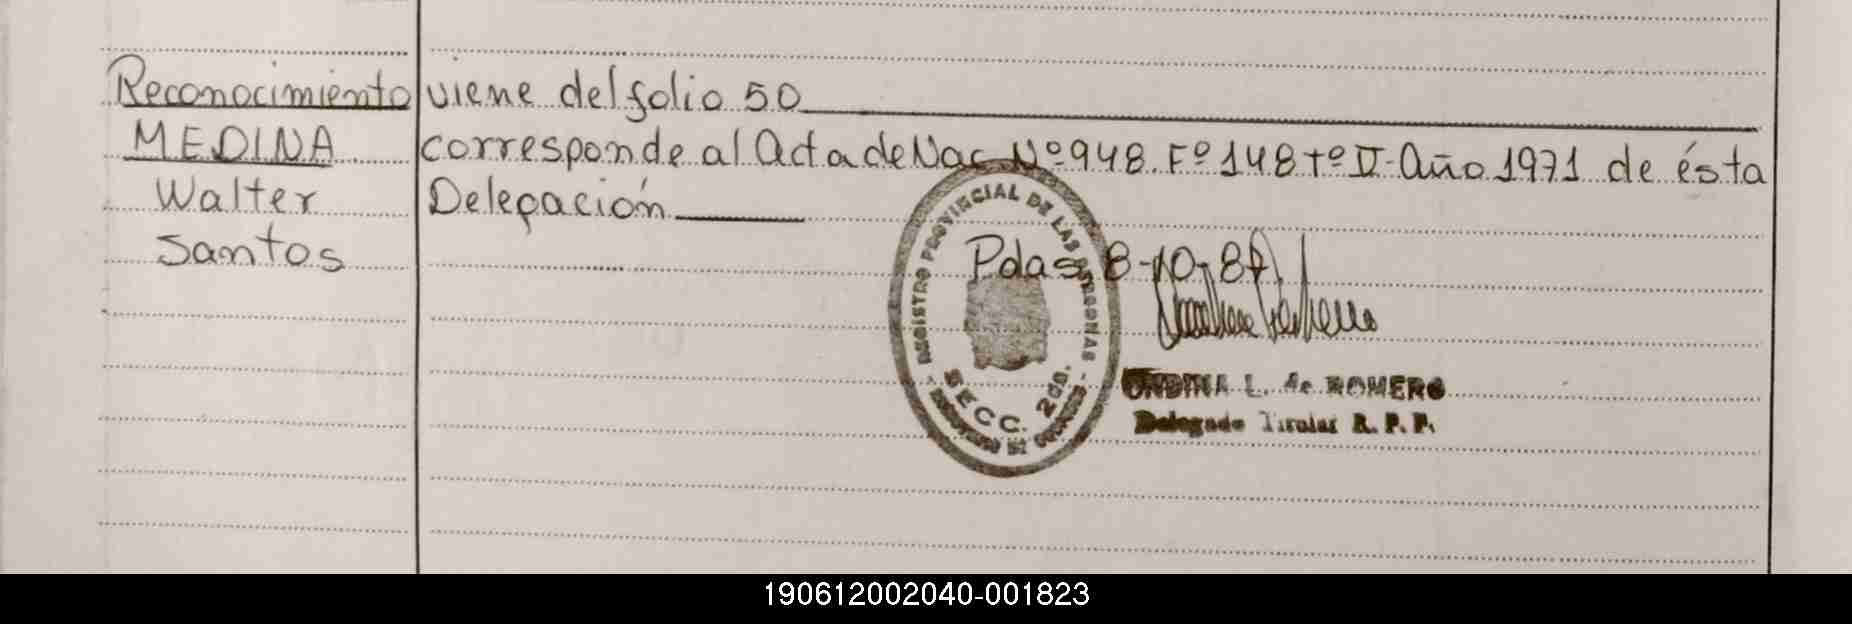 Reconocimiento viene del folio 50
MEDINA corresponde al Acta de Nac. Nº 948. Fº 148 tº II-Año 1971 de ésta
Walter Delegación
Santos
Pdas, 8-10-87
REGISTRO PROVINCIAL DE LAS PERSONAS
SECC. 2da.
ONDINA L. de ROMERO
Delegado Titular R. P. P.
190612002040-001823